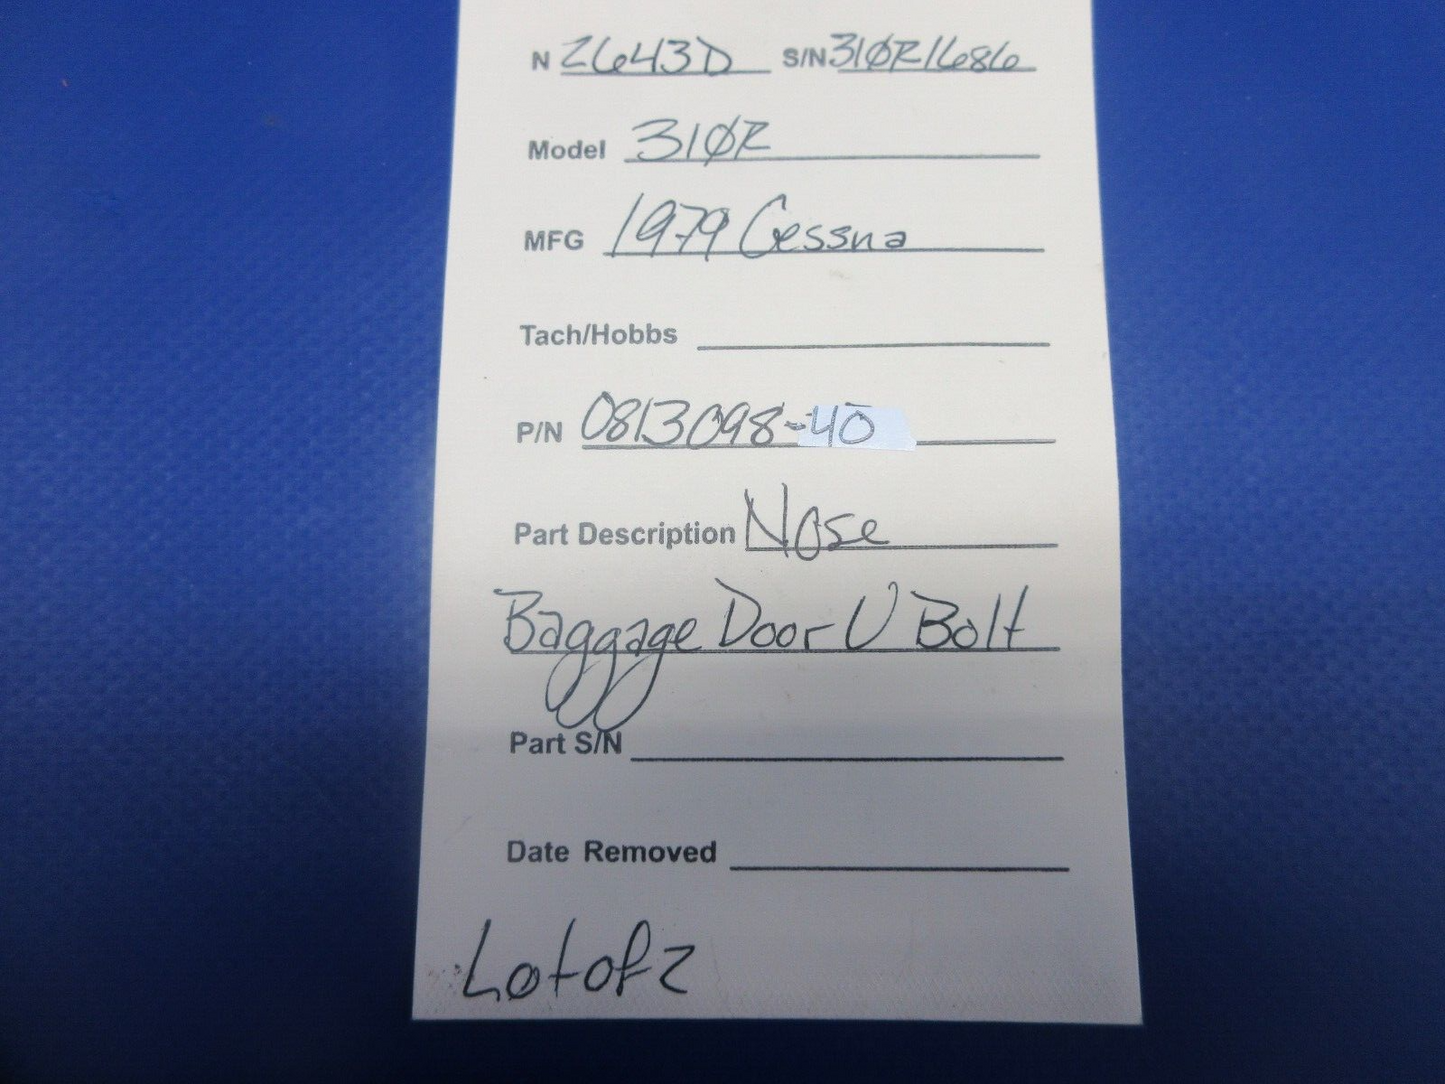 N 2643D S/N 310R1686
Model 310R
MFG 1979 Cessna
Tach/Hobbs
P/N 0813098-40
Part Description Nose
Baggage Door U Bolt
Part S/N
Date Removed
Lot of 2